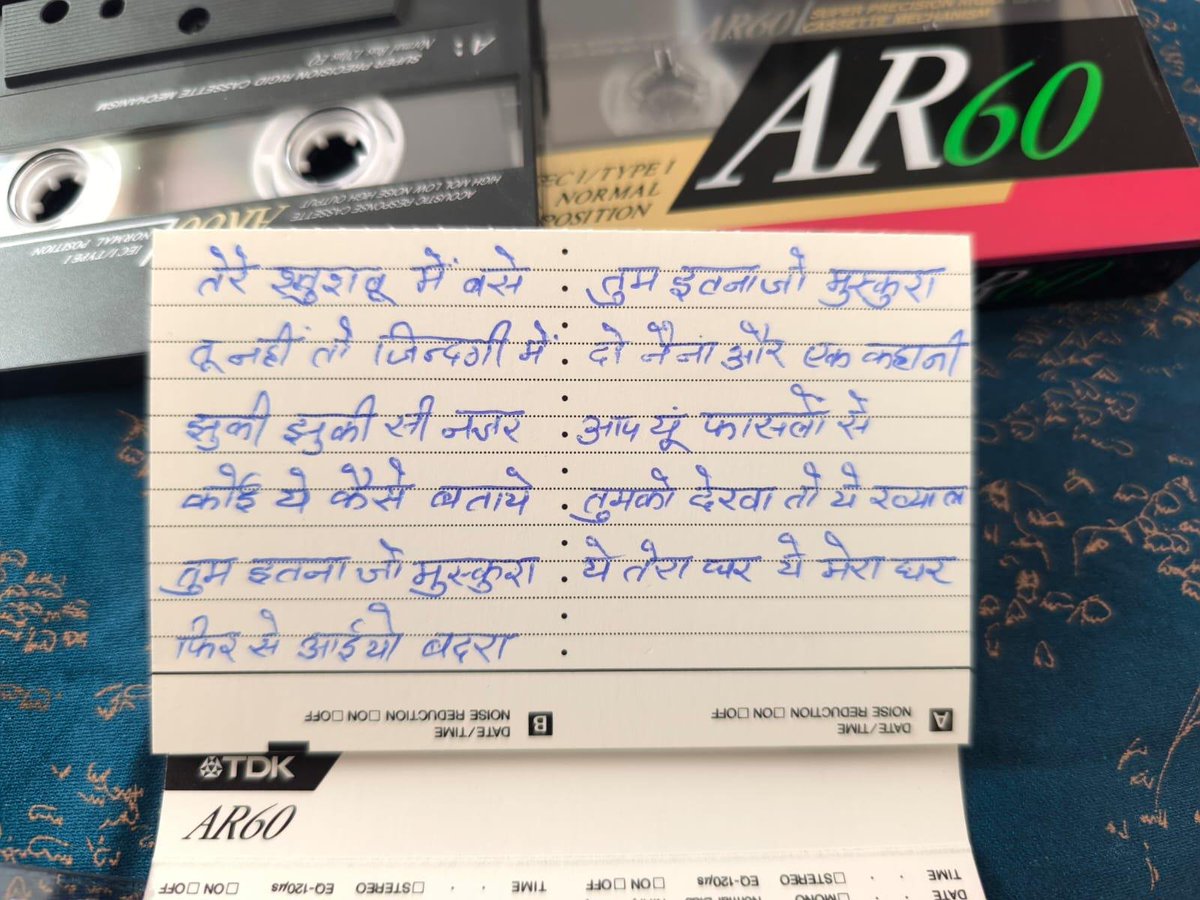 A: SUPER PRECISION RIGID CASSETTE MECHANISM
ACOUSTIC RESPONSE CASSETTE
HIGH MOL LOW NOISE HIGH OUTPUT
IEC I/TYPE I
NORMAL POSITION
AR60 SUPER PRECISION
CASSETTE MECHANISM
AR60
IEC I/TYPE I
NORMAL
POSITION
तेरे खुशबू में बसे
तू नहीं तो जिन्दगी में
झुकी झुकी सी नजर
कोई ये कैसे बताये
तुम इतना जो मुस्कुरा
फिर से आईयो बदरा
तुम इतना जो मुस्कुरा
दो नैना और एक कहानी
आप यूं फासलों से
तुमको देखा तो ये ख्याल
ये तेरा घर ये मेरा घर
B DATE/TIME
NOISE REDUCTION □ON □OFF
A DATE/TIME
NOISE REDUCTION □ON □OFF
TDK
AR60
DATE
TIME □STEREO EQ-120μs □ON □OFF
TIME □STEREO EQ-120μs □ON □OFF
□MONO